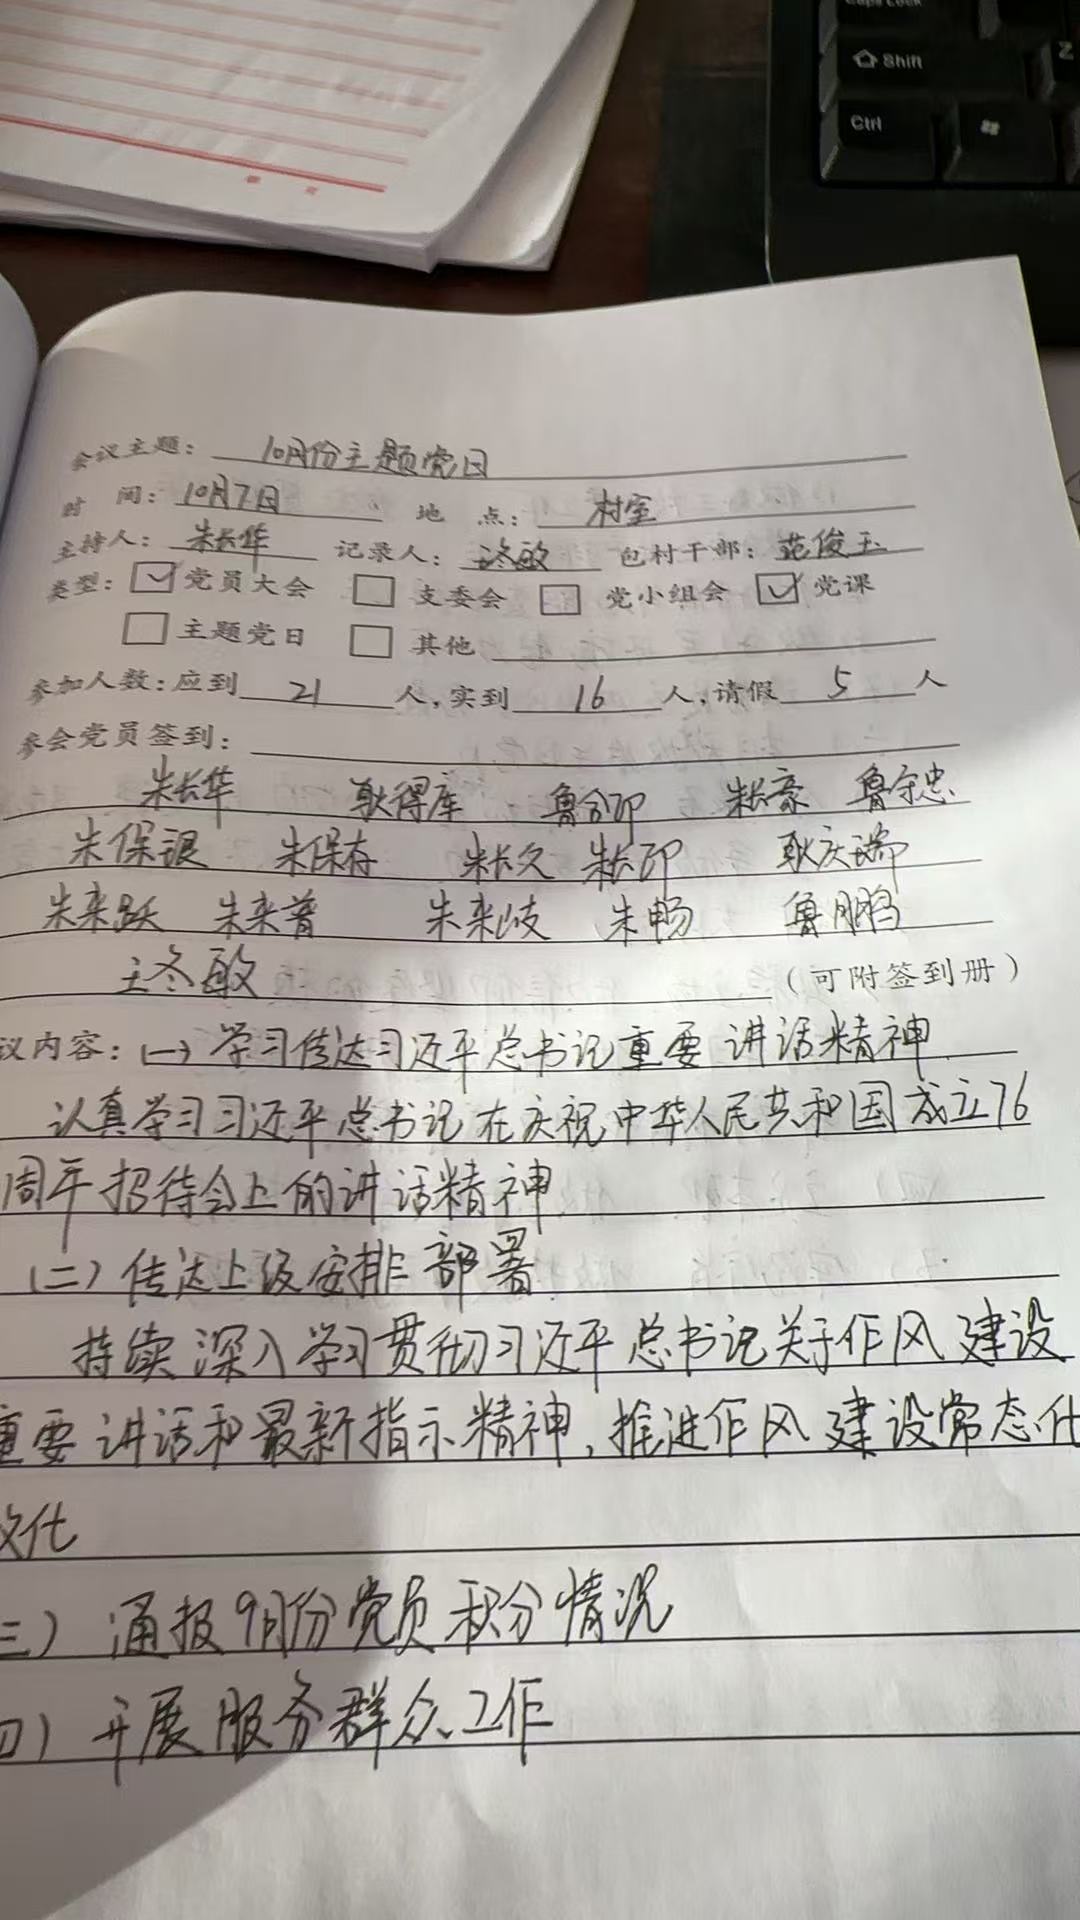 Caps Lock
Shift
Z
Ctrl
会议主题: 10月份主题党日
时 间: 10月7日 地 点: 村室
主持人: 朱长华 记录人: 王冬敏 包村干部: 范俊玉
类型: ☑ 党员大会 □ 支委会 □ 党小组会 ☑ 党课
□ 主题党日 □ 其他
参加人数: 应到 21 人, 实到 16 人, 请假 5 人
参会党员签到:
朱长华 耿得库 鲁合印 朱长豪 鲁守忠
朱保银 朱保存 朱长久 朱长印 耿庆瑞
朱来跃 朱来普 朱来岐 朱畅 鲁鹏
王冬敏 (可附签到册)
议内容: (一) 学习传达习近平总书记重要讲话精神
认真学习习近平总书记在庆祝中华人民共和国成立76
周年招待会上的讲话精神
(二) 传达上级安排部署
持续深入学习贯彻习近平总书记关于作风建设
重要讲话和最新指示精神, 推进作风建设常态化
效化
三) 通报9月份党员积分情况
四) 开展服务群众工作